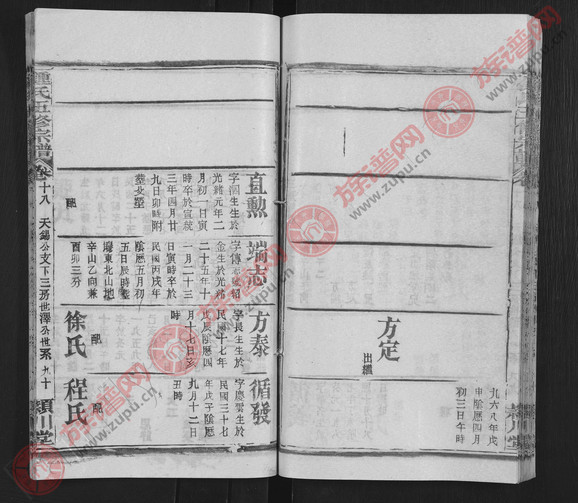 方定
出繼
九六八年戊
申陰歷四月
初三日午時
直勳
字國生生於
光緒元年二
月初一日寅
時卒於宣統
三年四月廿
九日卯時附
葬北塋
配
端志
金生於光緒
二十五年十
一月二十三
日寅時卒於
民國丙戌年
陰歷五月初
五日辰時葬
廢東北山地
辛山乙向兼
酉卯三分
配
徐氏
方泰
字長生生於
民國十七年
戊辰陰歷四
月十七日亥
時
配
程氏
循發
字慶雲生於
民國三十七
年戊子陰歷
九月十二日
丑時
配
鍾氏五修宗譜
卷十八
天錫公支下三房世澤公世系
九十
潁川堂
族譜网
www.zupu.cn